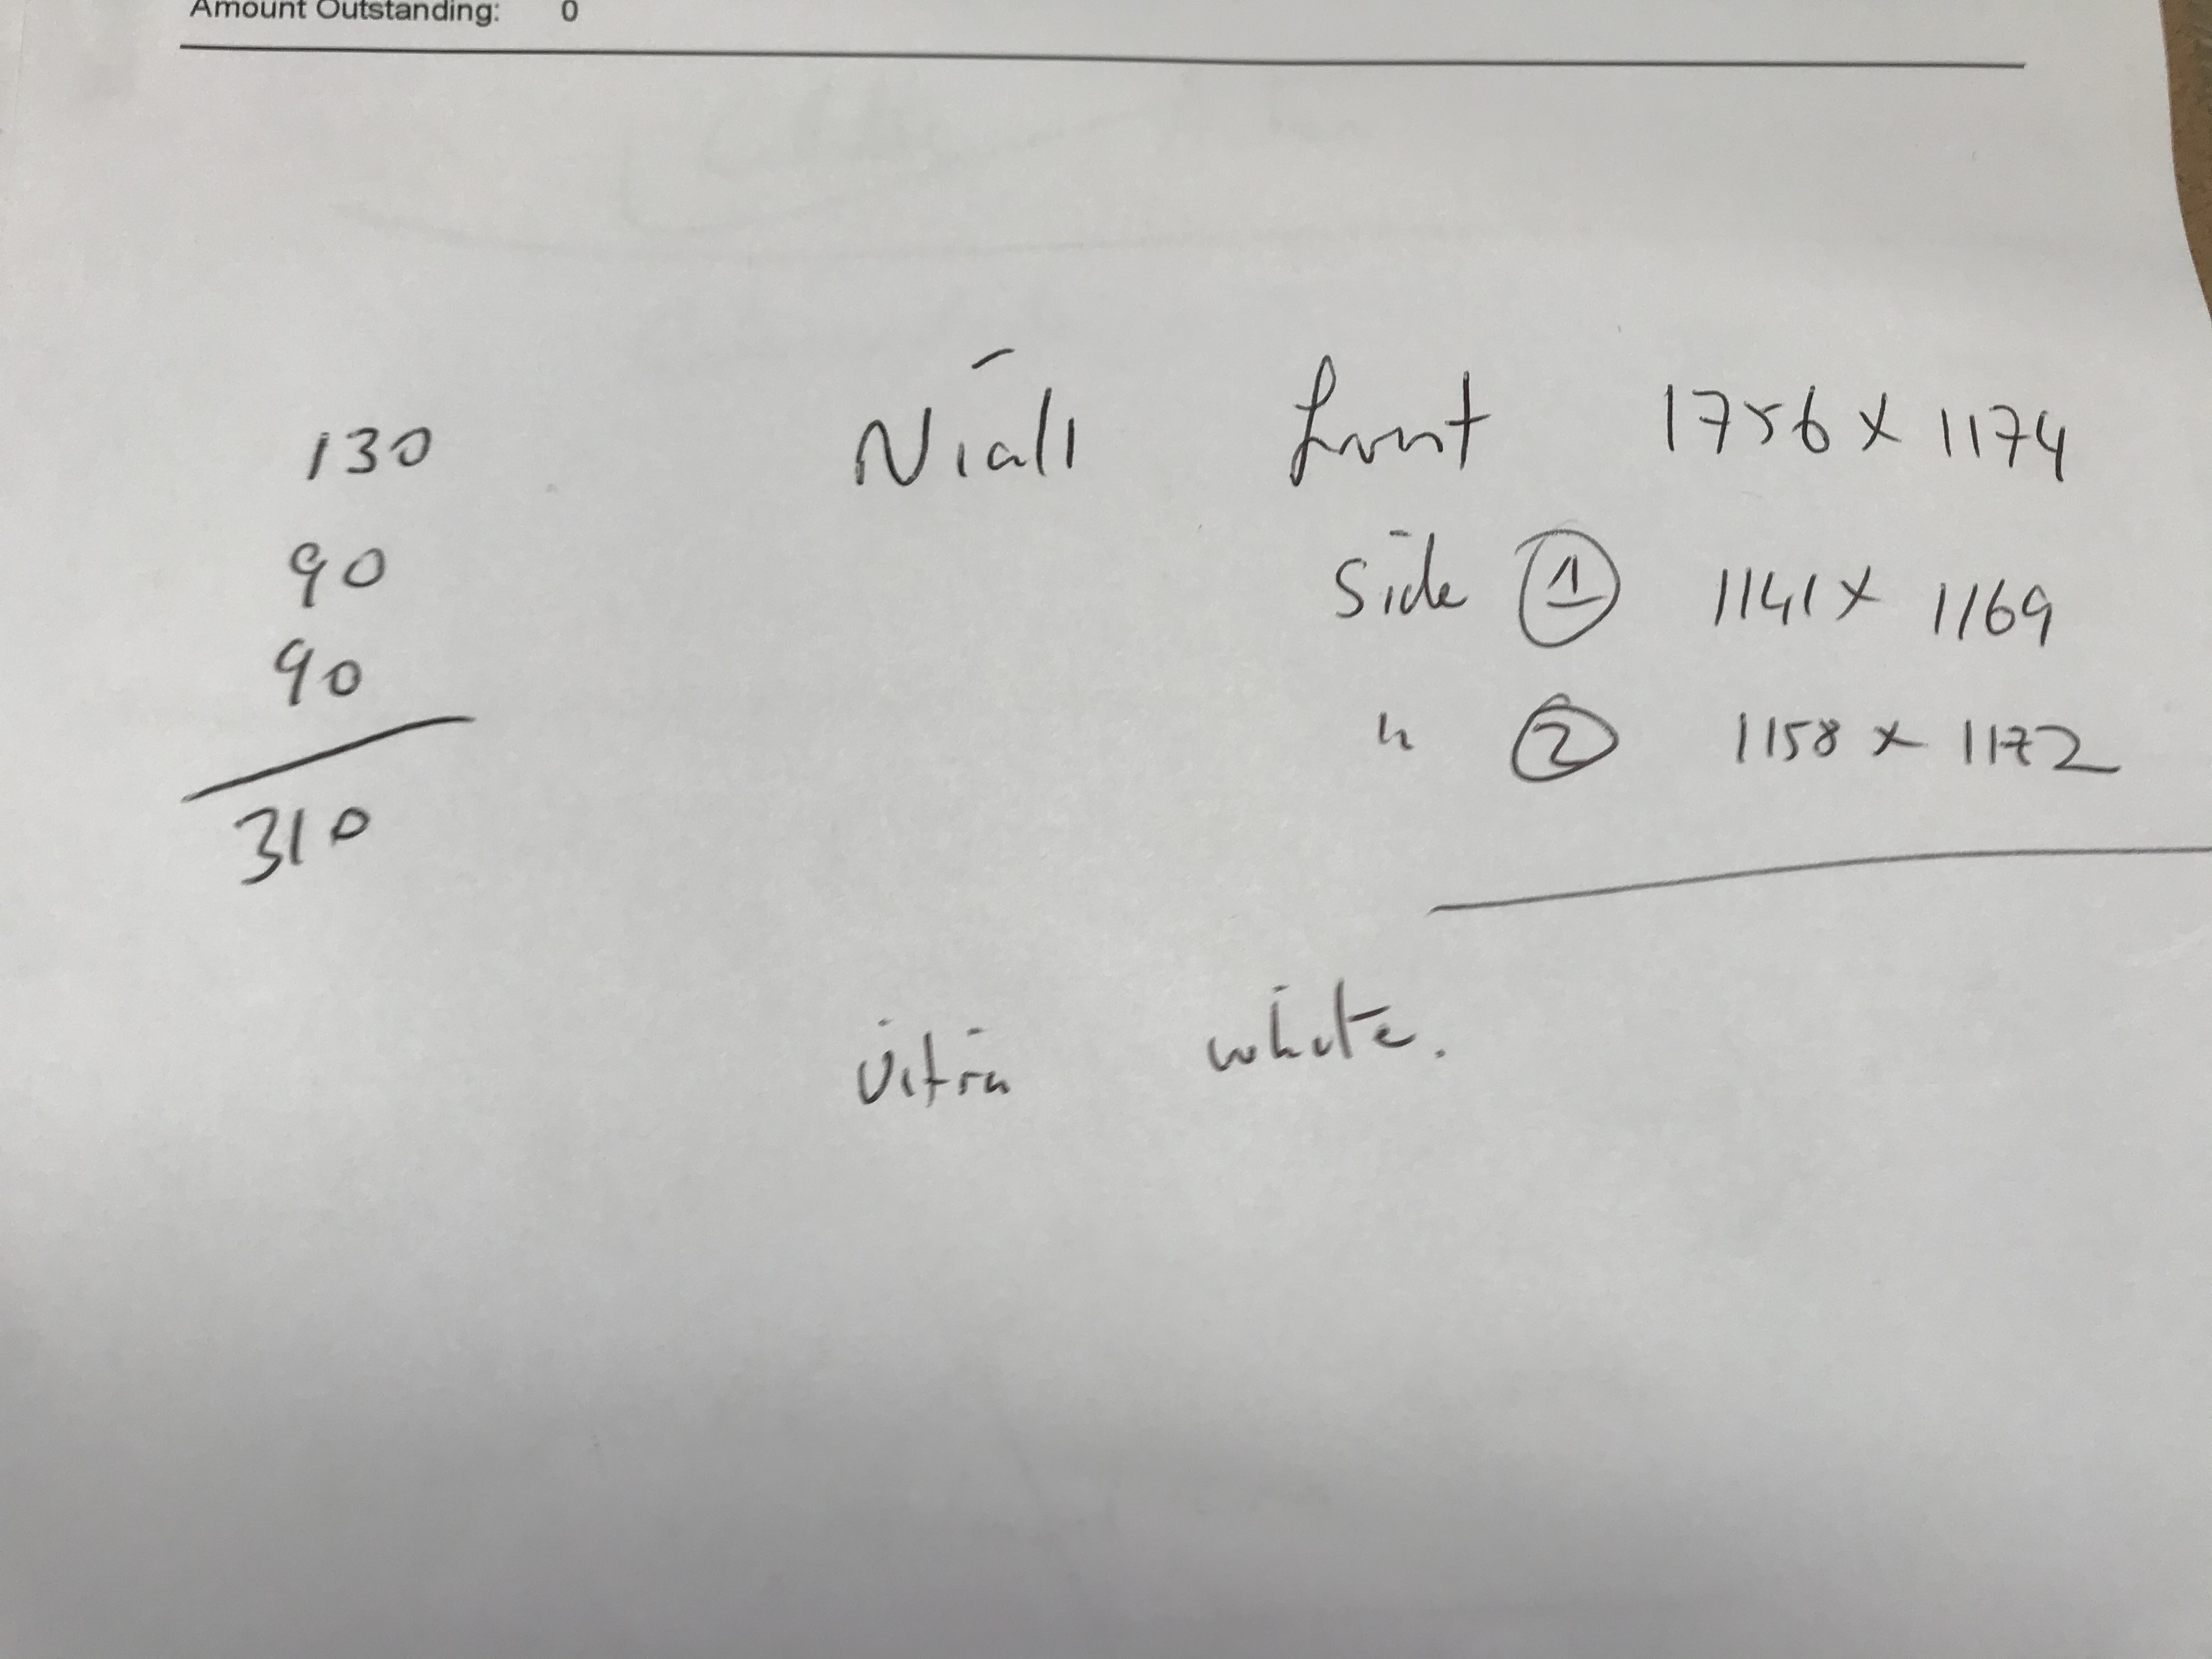 Amount Outstanding: 0
130 Niall front 1756 x 1174
90 Side 1 1141 x 1169
90 " 2 1158 x 1172
310
Vitra white.